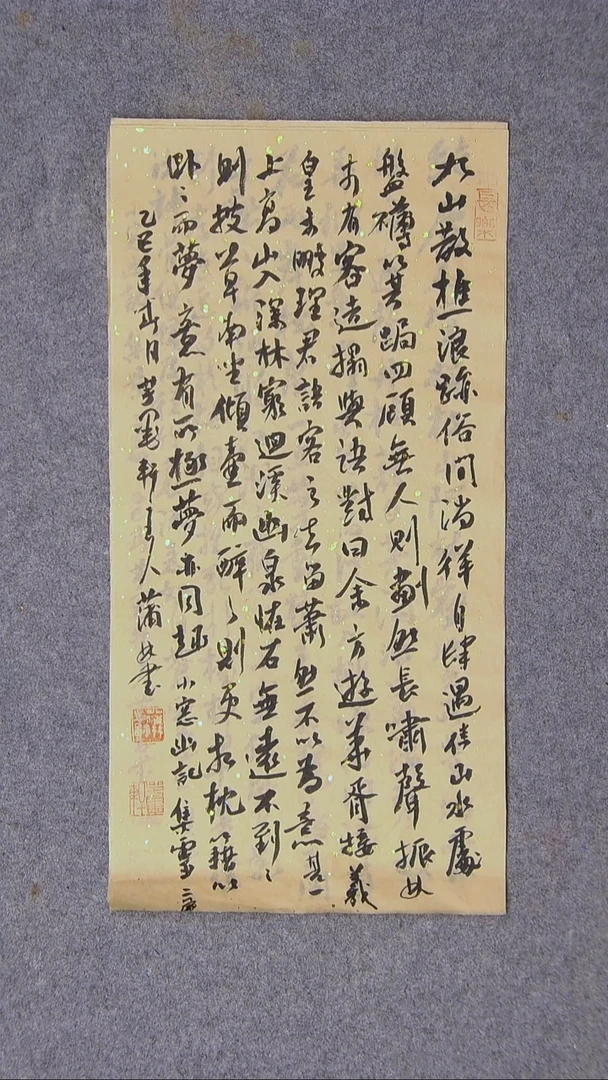 長樂
九山散樵浪跡俗間淌徉自肆遇佳山水處
盤礴箕踞四顧無人則劃然長嘯聲振林
木有客造榻與語對曰余方遊華胥接羲
皇未暇理君語客之去留蕭然不以為意其一
上高山入深林窮迴溪幽泉怪石無遠不到々
則披草而坐傾壺而醉々則更相枕籍以
臥々而夢意有所極夢亦同趣小窓幽記集靈二
乙巳年夏日墨軒主人蒲書